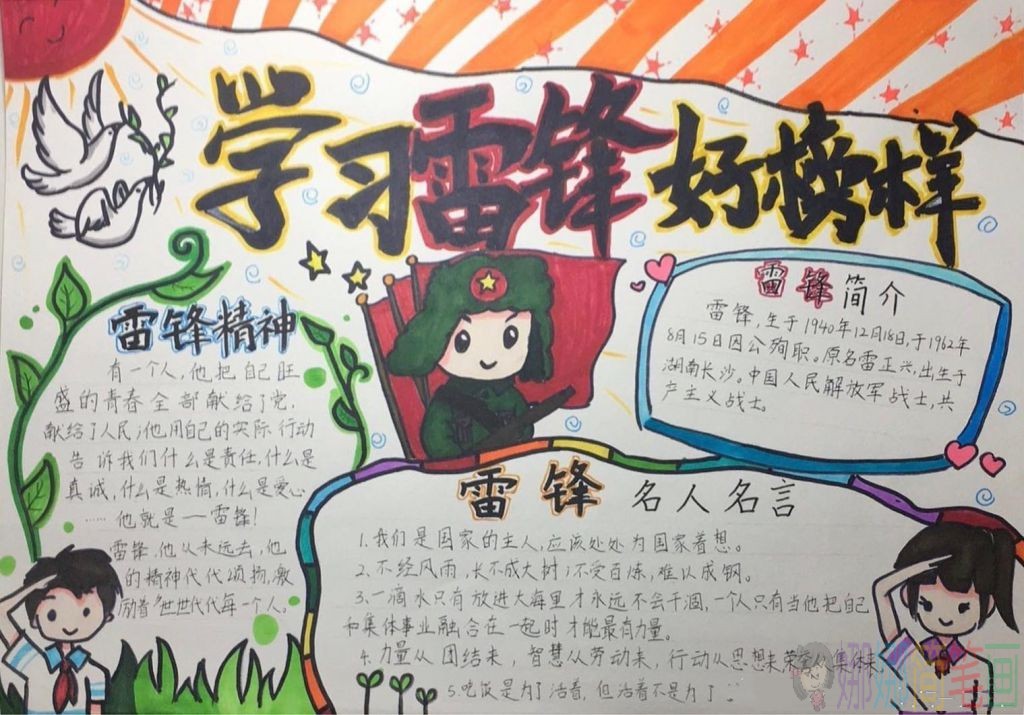 学习雷锋好榜样
雷锋精神
有一个人,他把自己旺
盛的青春全部献给了党,
献给了人民;他用自己的实际行动
告诉我们什么是责任,什么是
真诚,什么是热情,什么是爱心
……他就是一雷锋!
雷锋,他从未远去,他
的精神代代颂扬,激
励着世世代代每一个人。
雷锋简介
雷锋,生于1940年12月18日,于1962年
8月15日因公殉职。原名雷正兴,出生于
湖南长沙。中国人民解放军战士,共
产主义战士。
雷锋名人名言
1.我们是国家的主人,应该处处为国家着想。
2.不经风雨,长不成大树;不受百炼,难以成钢。
3.一滴水只有放进大海里才永远不会干涸,一个人只有当他把自己
和集体事业融合在一起时才能最有力量。
4.力量从团结来,智慧从劳动来,行动从思想来荣誉从集体来。
5.吃饭是为了活着,但活着不是为了
简笔画